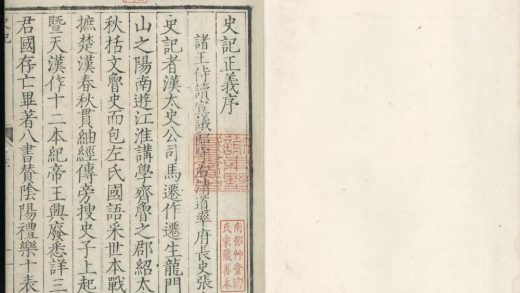 史記正義序
諸王侍讀宣議郎守右清道率府長史張
史記者漢太史公司馬遷作遷生龍門
山之陽南遊江淮講學齊魯之郡紹太
秋括文魯史而包左氏國語采世本戰
摭楚漢春秋貫紬經傳旁搜史子上起
暨天漢作十二本紀帝王興廢悉詳三
君國存亡畢著八書贊陰陽禮樂十表
南部艸堂
氏家藏善本